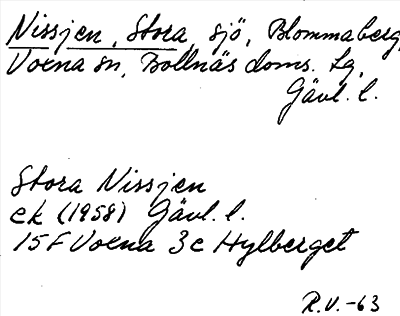 Nissjen, Stora, sjö, Blommaberg,
Voxna sn, Bollnäs doms. lg,
Gävl. l.
Stora Nissjen
ek (1958) Gävl. l.
15F Voxna 3c Hylberget
R.V.-63